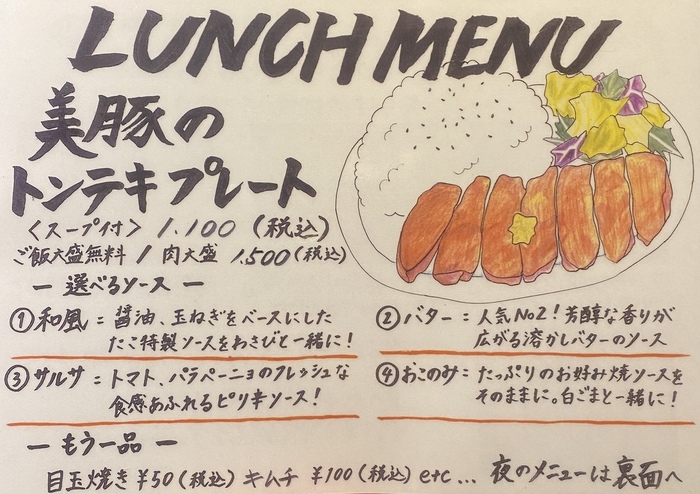 LUNCH MENU
美豚の
トンテキプレート
〈スープ付〉 1,100 (税込)
ご飯大盛無料 / 肉大盛 1,500(税込)
― 選べるソース ―
①和風 = 醤油、玉ねぎをベースにした
たこ特製ソースをわさびと一緒に!
②バター = 人気No2! 芳醇な香りが
広がる溶かしバターのソース
③サルサ = トマト、ハラペーニョのフレッシュな
食感あふれるピリ辛ソース!
④おこのみ = たっぷりのお好み焼ソースを
そのままに。白ごまと一緒に!
― もう一品 ―
目玉焼き ¥50 (税込) キムチ ¥100 (税込) etc... 夜のメニューは裏面へ